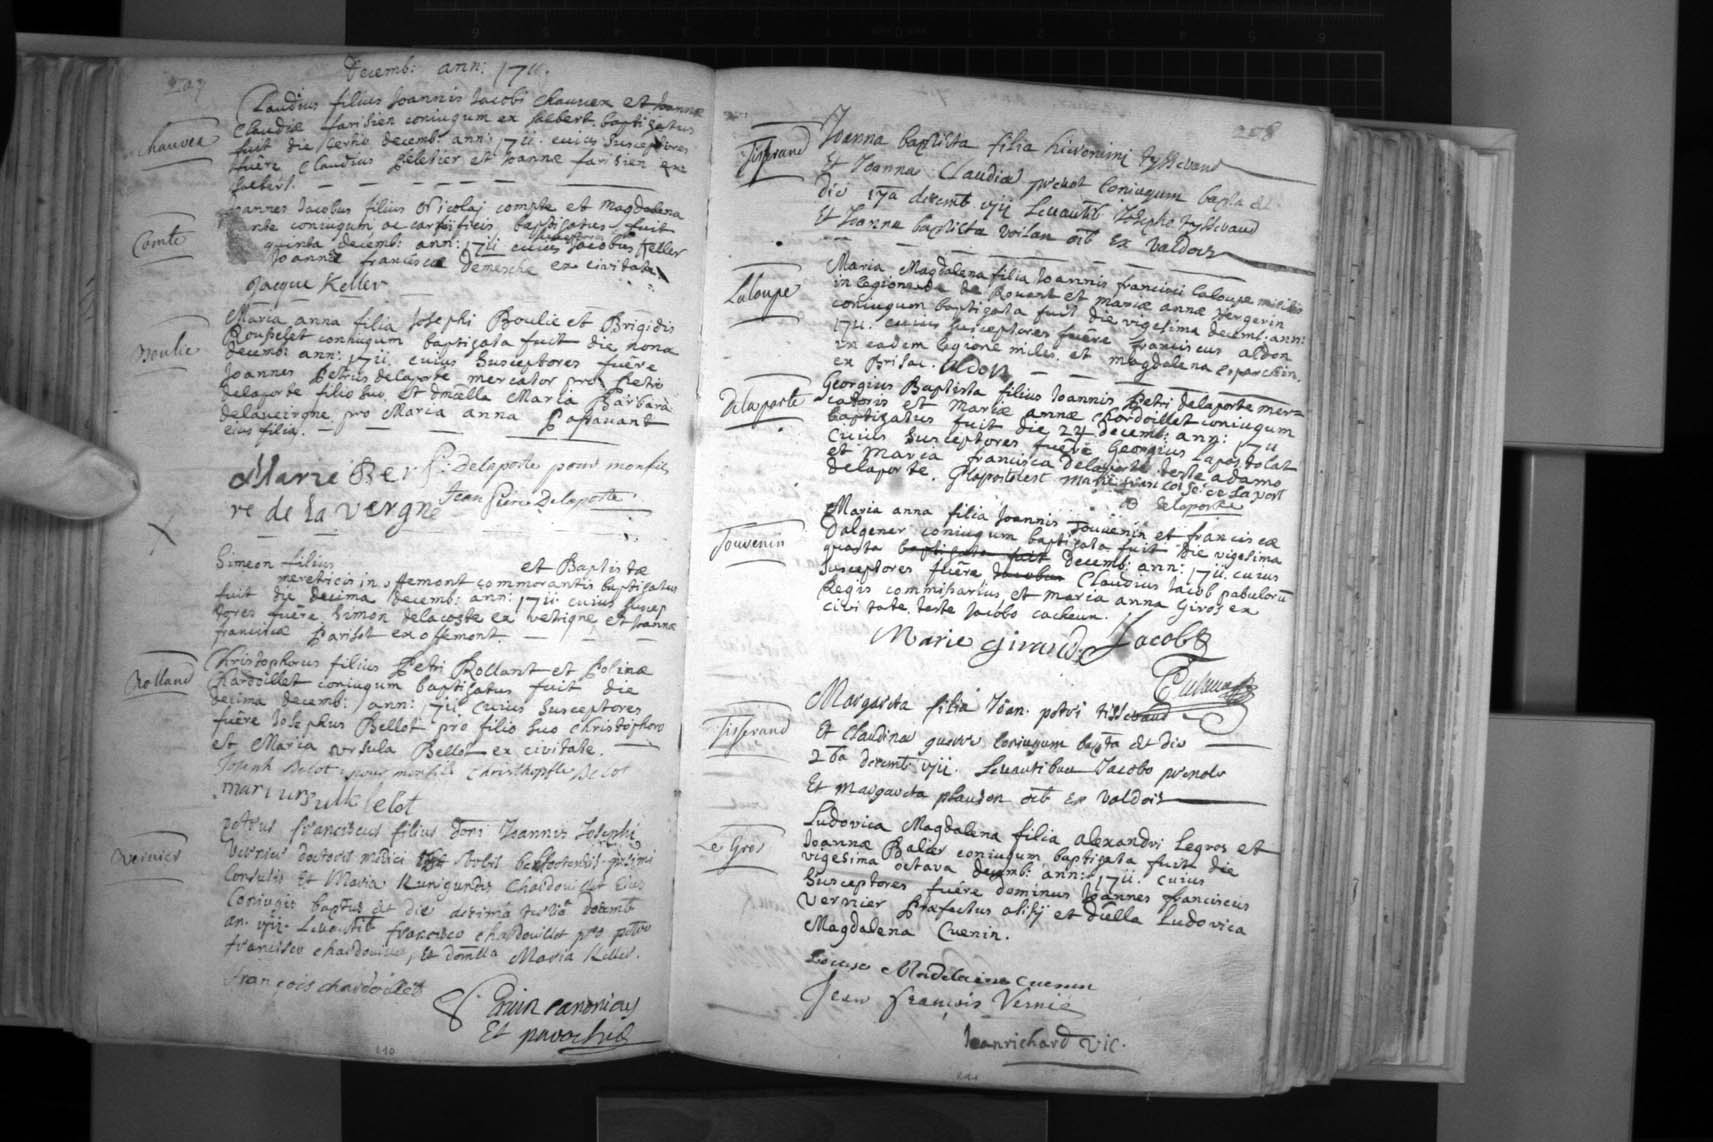 207
Decemb: ann: 1711.
Chauvex
Claudius filius Joannis Jacobi Chauvex et Joannæ
Claudiæ farisien coniugum ex salbert baptizatus
fuit die tertio decemb: ann: 1711. cuius susceptores
fuêre Claudius peletier et Joanna farisien ex
salbert.
Comte
Joannes Jacobus filius Nicolai compte et Magdalena
coniugum ac carnificis, baptizatus fuit
quinta decemb: ann: 1711 cuius Jacobus Keller
Joanna francisca demesche ex civitate
Jacque Keller
Boulie
Maria anna filia Josephi Boulie et Brigidis
Rousselet coniugum baptizata fuit die nona
decemb: ann: 1711. cuius susceptores fuêre
Joannes petrus delaporte mercator pro petro
delaporte filio suo, et dmælla Maria Barbara
delavergne pro Maria anna passavant
eius filia.
Marie Ber P: Delaporte pour monfils
re de la vergne Jean Piere Delaporte
Simeon filius et Baptistæ
meretricis in offemont commorantis baptizatus
fuit die decima decemb: ann: 1711 cuius suscep
tores fuêre Simon delacoste ex vetrigne et Joanna
francisca parisot ex offemont.
Rolland
Christophorus filius petri Rollant et polinæ
Chardoillet coniugum baptizatus fuit die
decima decemb: ann: 1711 cuius susceptores
fuêre Josephus Bellot pro filio suo christophoro
et Maria ursula Bellot ex civitate.
Joseph Belot pour monfils Christhopfle Belot
mari ursulle belot
Vernier
petrus franciscus filius domi Joannis Josephi
Vernier doctoris medici nobilis
consulis et Maria Kunigundis Chardouillet eius
coniugis baptus est die decima tertia decemb
an. 1711. Levantib francisco chardouillet pro petro
francisco chardouillet, et domlla Maria Keller.
françois chardoillet
canonicus
Et parochus
210
208
Tisserand
Joanna baptista filia hieronimi tysserand
Et Joanna Claudiæ prenot coniugum bapta est
die 17a decemb 1711 Levantib Josepho tysserand
Et Joanna baptista voilan oib Ex valdois
Laloupe
Maria Magdalena filia Joannis francisci laloupe militis
in legione de Rouent et mariæ annæ Vergerin
coniugum baptizata fuit die vigesima decemb: ann:
1711. cuius susceptores fuêre franciscus aldon
in eadem legione miles. et magdalena
ex Brisac. aldon
Delaporte
Georgius Baptista filius Joannis petri delaporte mer=
catoris et mariæ annæ chardoillet coniugum
baptizatus fuit die 24 decemb: ann: 1711
cuius susceptores fuêre Georgius lapostolat
et maria francisca delaporte teste adamo
delaporte. G lapostolest marie francoise de laport
D delaporte
Touvenin
Maria anna filia Joannis Touvenin et franciscæ
Dalgener coniugum baptizata fuit die vigesima
quarta baptizata fuit decemb: ann: 1711. cuius
susceptores fuêre Jacobus Claudius Jacob pabulorū
Regis commissarius et maria anna Giros ex
civitate. teste Jacobo cacheux.
Marie Girard Jacob
Tisserand
Margarita filia Joan. petri tisserand
Et Claudina coniugum bapta est die
26a decemb 1711. Levantibus Jacobo prenot
Et margarita plauson oib Ex Valdois
Le Gros
Ludovica Magdalena filia alexandri Legros et
Joannæ Balier coniugum baptizata fuit die
vigesima octava decemb: ann: 1711. cuius
susceptores fuêre dominus Joannes franciscus
vernier præfectus alisij et d̃ella Ludovica
Magdalena Cuenin.
Louise Madelaine Cuenin
Jean françois Vernie
Jeanrichard vic.